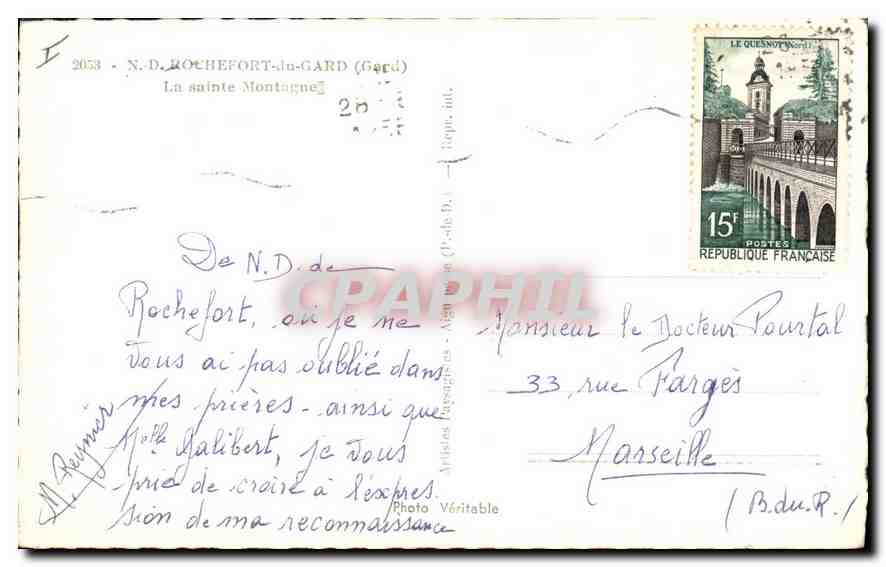 2053 - N.-D. ROCHEFORT-du-GARD (Gard)
La sainte Montagne
28
De N.D. de
Rochefort, où je ne
vous ai pas oublié dans
mes prières - ainsi que
Melle Galibert, je vous
prie de croire à l'expres
sion de ma reconnaissance
M. Reynier
Photo Véritable
Artistes Paysagistes - (P.-de-D.) — Repr. int.
CPAPHIL
LE QUESNOY (Nord)
15F
POSTES
REPUBLIQUE FRANÇAISE
Monsieur le Docteur Pourtal
33, rue Fargès
Marseille
(B.du.R.)